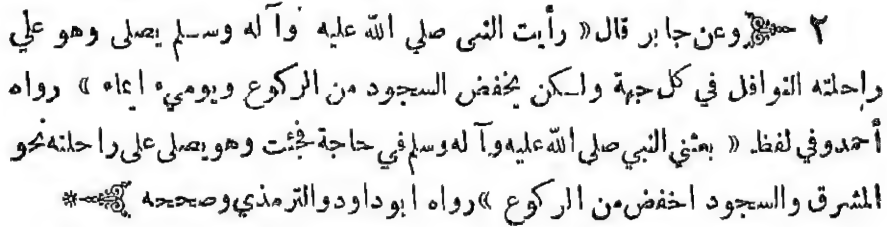 ٢ وعن جابر قال « رأيت النبى صلي الله عليه وآله وسلم يصلى وهو علي
راحلته النوافل في كل جهة ولكن يخفض السجود من الركوع ويوميء ايماء » رواه
أحمد وفي لفظ. « بعثني النبي صلى الله عليه وآله وسلم في حاجة فجئت وهو يصلى على راحلته نحو
المشرق والسجود اخفض من الركوع » رواه ابو داود والترمذي وصححه *